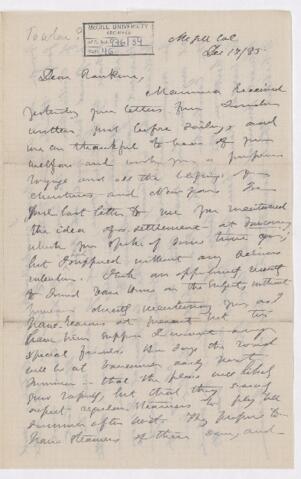 McGILL UNIVERSITY
ARCHIVES
ACC. NO. 936/34
REF. 46
McGill Col
Dec 17/85
Dear Rankine,
Mamma received
yesterday your letters from London
written just before sailing, and
we are thankful to hear of your
welfare and wish you a prosperous
voyage and all the blessings of
Christmas and New Year. In
your last letter to me you mentioned
the idea of a settlement at
which you spoke of some time ago,
but I supposed without any serious
intention. I took an opportunity recently
to sound Donald on the subject, without
directly mentioning you, as I
have reasons at present but
him
special friends. He says the road
will be at Vancouver early next
Summer — that the place will likely
grow rapidly, but that they scarcely
expect regular steamers to ply till
Summer after next. They propose to
have steamers of their own, and